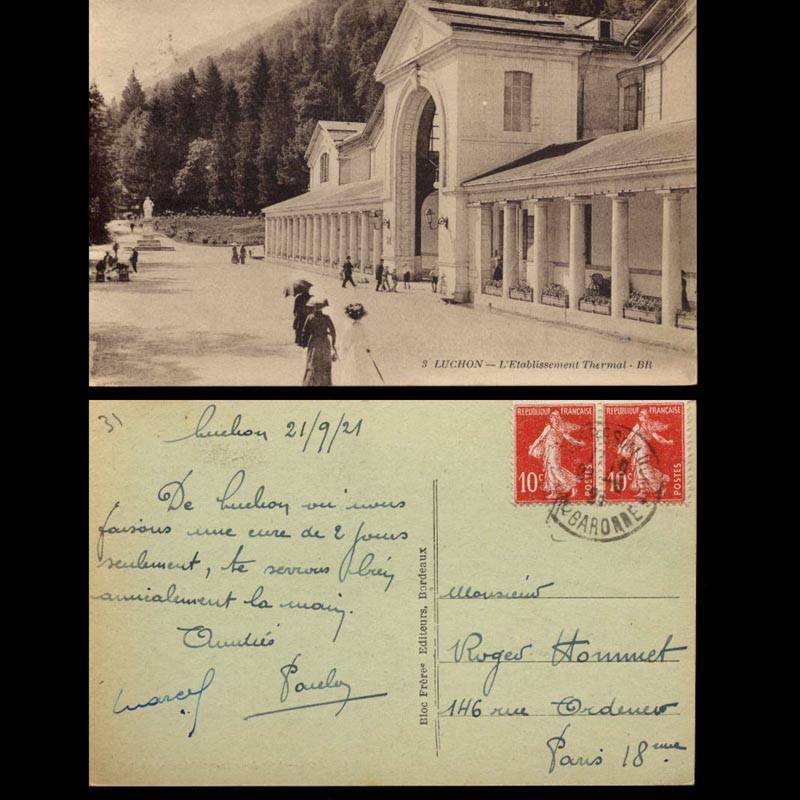 3 LUCHON — L'Etablissement Thermal - BR
31
Luchon 21/9/21
De Luchon où nous
faisons une cure de 2 jours
seulement, te serrons bien
amicalement la main.
Amitiés
Marcel
REPUBLIQUE FRANÇAISE
10c
POSTES
REPUBLIQUE FRANÇAISE
10c
POSTES
GARONNE
Bloc Frères Editeurs, Bordeaux
Monsieur
Roger Hommet
146 rue Ordener
Paris 18eme